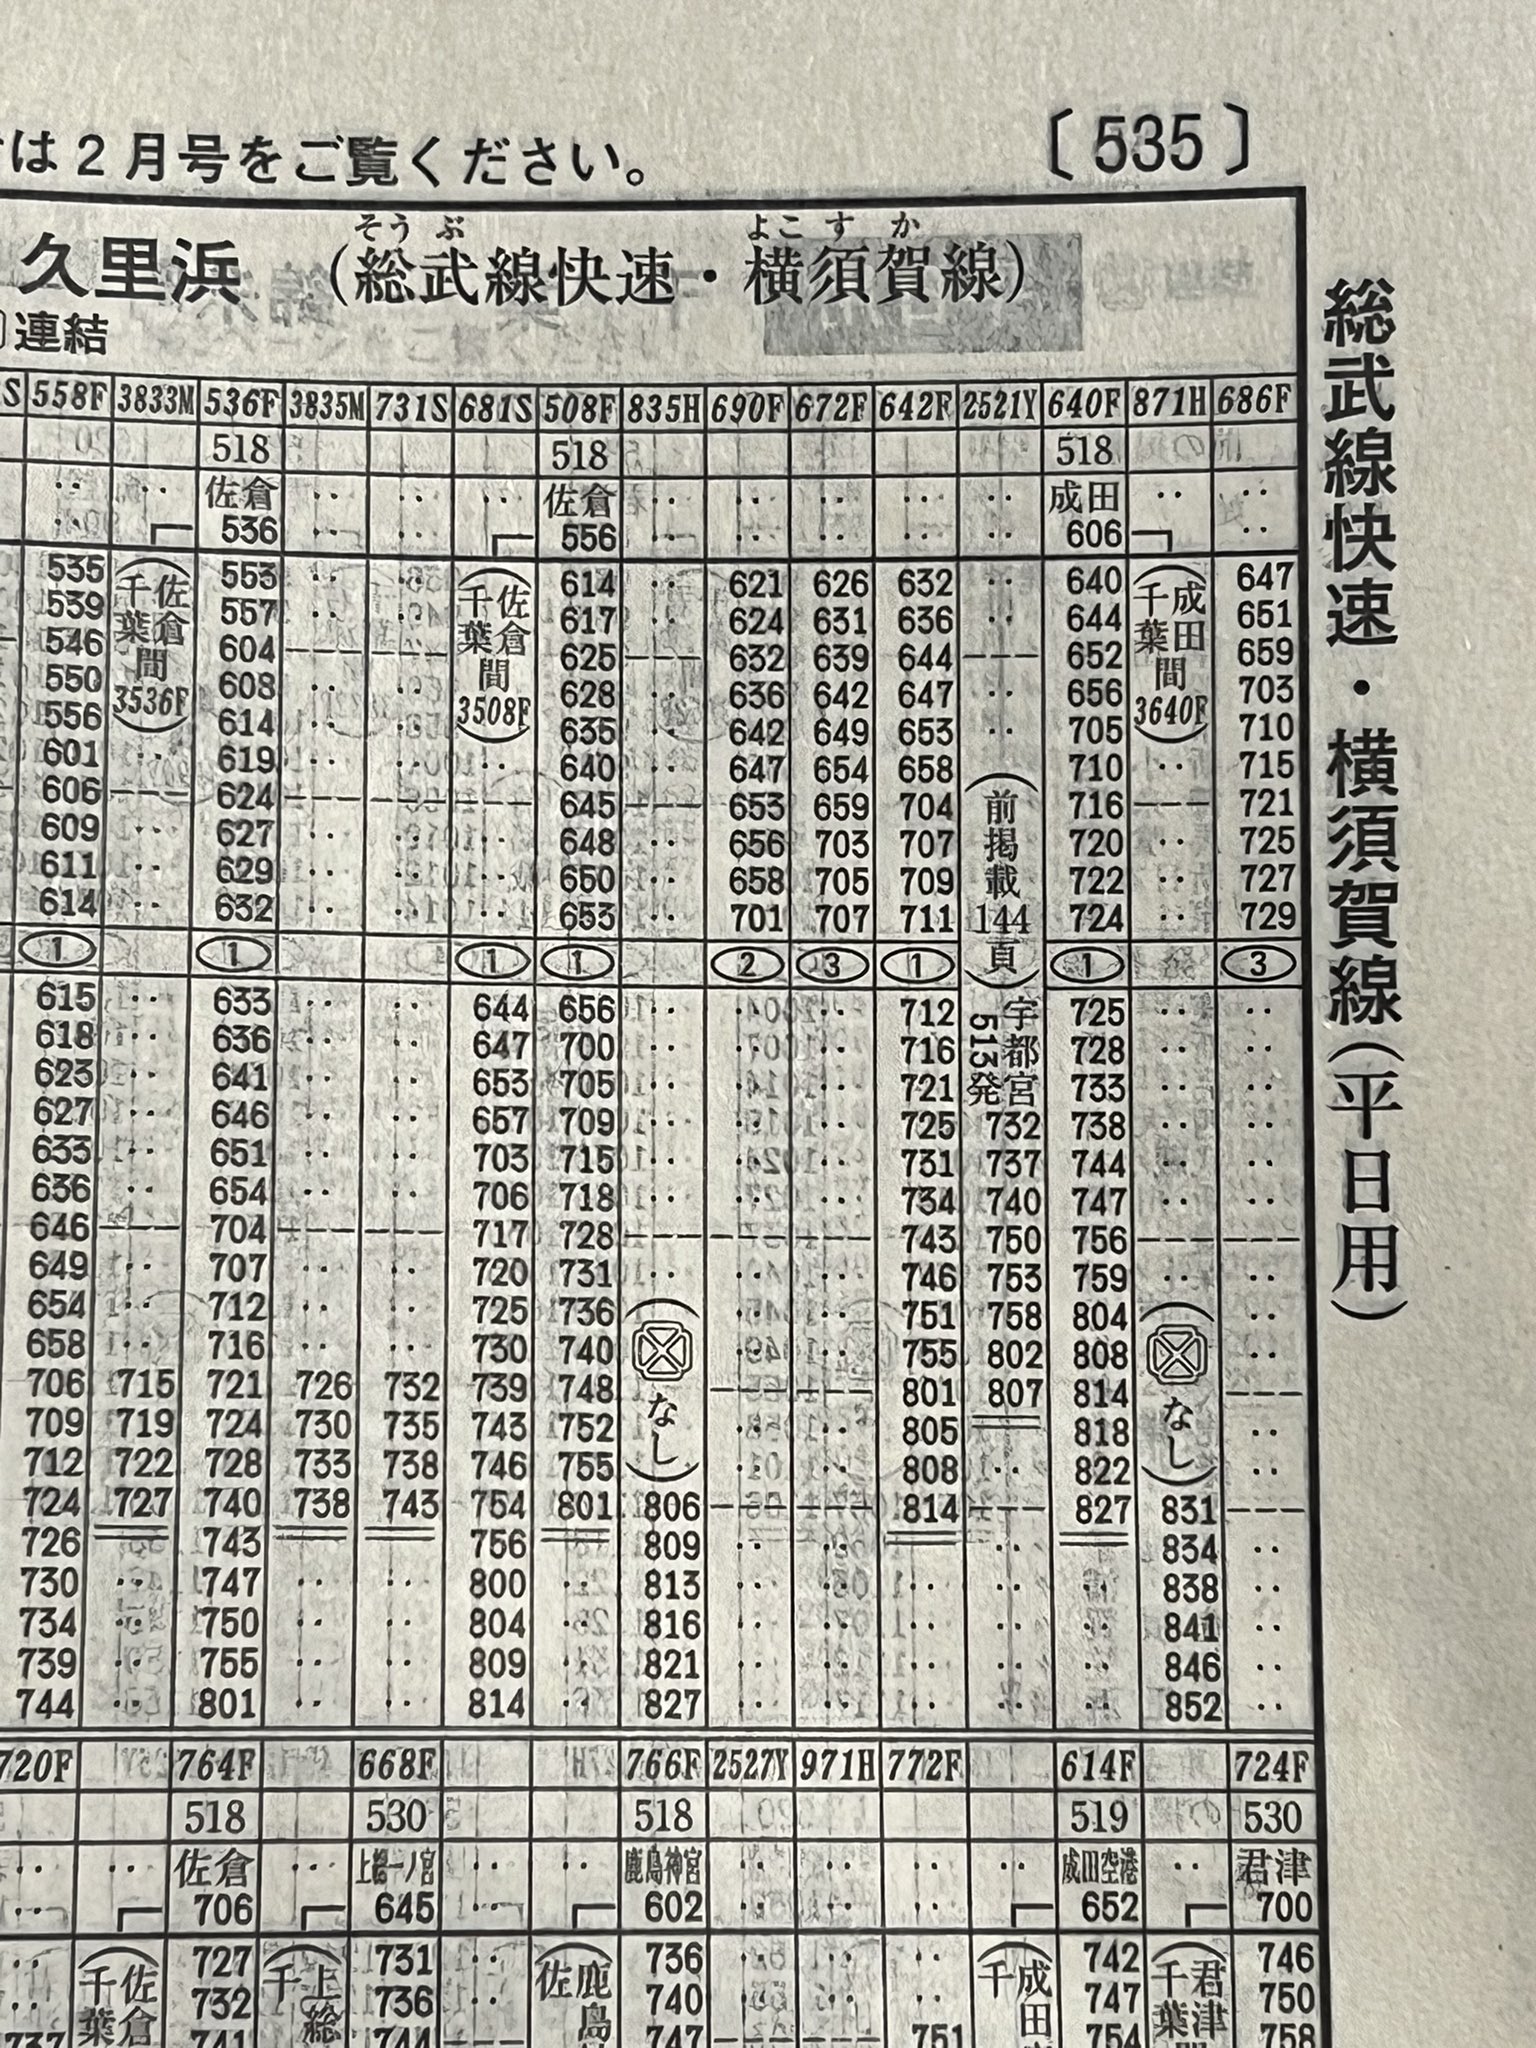 は2月号をご覧ください。
〔535〕
久里浜 (総武線快速・横須賀線)
そうぶ よこすか
連結
総武線快速・横須賀線(平日用)
S 558F 3833M 536F 3835M 731S 681S 508F 835H 690F 672F 642F 2521Y 640F 871H 686F
518 518 518
佐倉 佐倉 成田
536 556 606
535 553 614 621 626 632 640 647
539 557 617 624 631 636 644 651
546 604 625 632 639 644 652 659
550 608 628 636 642 647 656 703
556 614 635 642 649 653 705 710
601 619 640 647 654 658 710 715
606 624 645 653 659 704 716 721
609 627 648 656 703 707 720 725
611 629 650 658 705 709 722 727
614 632 653 701 707 711 724 729
(佐倉千葉間3536F)
(佐倉千葉間3508F)
(前掲載144頁)
(成田千葉間3640F)
1 1 1 1 2 3 1 1 3
宇都宮513発
615 633 644 656 712 725
618 636 647 700 716 728
623 641 653 705 721 733
627 646 657 709 725 732 738
633 651 703 715 731 737 744
636 654 706 718 734 740 747
646 704 717 728 743 750 756
649 707 720 731 746 753 759
654 712 725 736 751 758 804
658 716 730 740 755 802 808
706 715 721 726 732 739 748 801 807 814
709 719 724 730 735 743 752 805 818
712 722 728 733 738 746 755 808 822
724 727 740 738 743 754 801 806 814 827 831
(なし)
(なし)
726 743 756 809 834
730 747 800 813 838
734 750 804 816 841
739 755 809 821 846
744 801 814 827 852
720F 764F 668F 766F 2527Y 971H 772F 614F 724F
518 530 518 519 530
佐倉 上総一ノ宮 鹿島神宮 成田空港 君津
706 645 602 652 700
727 731 736 742 746
732 736 740 747 750
737 741 744 747 751 754 758
(佐倉千葉
(上総千
(鹿島佐
(成田千
(君津千葉